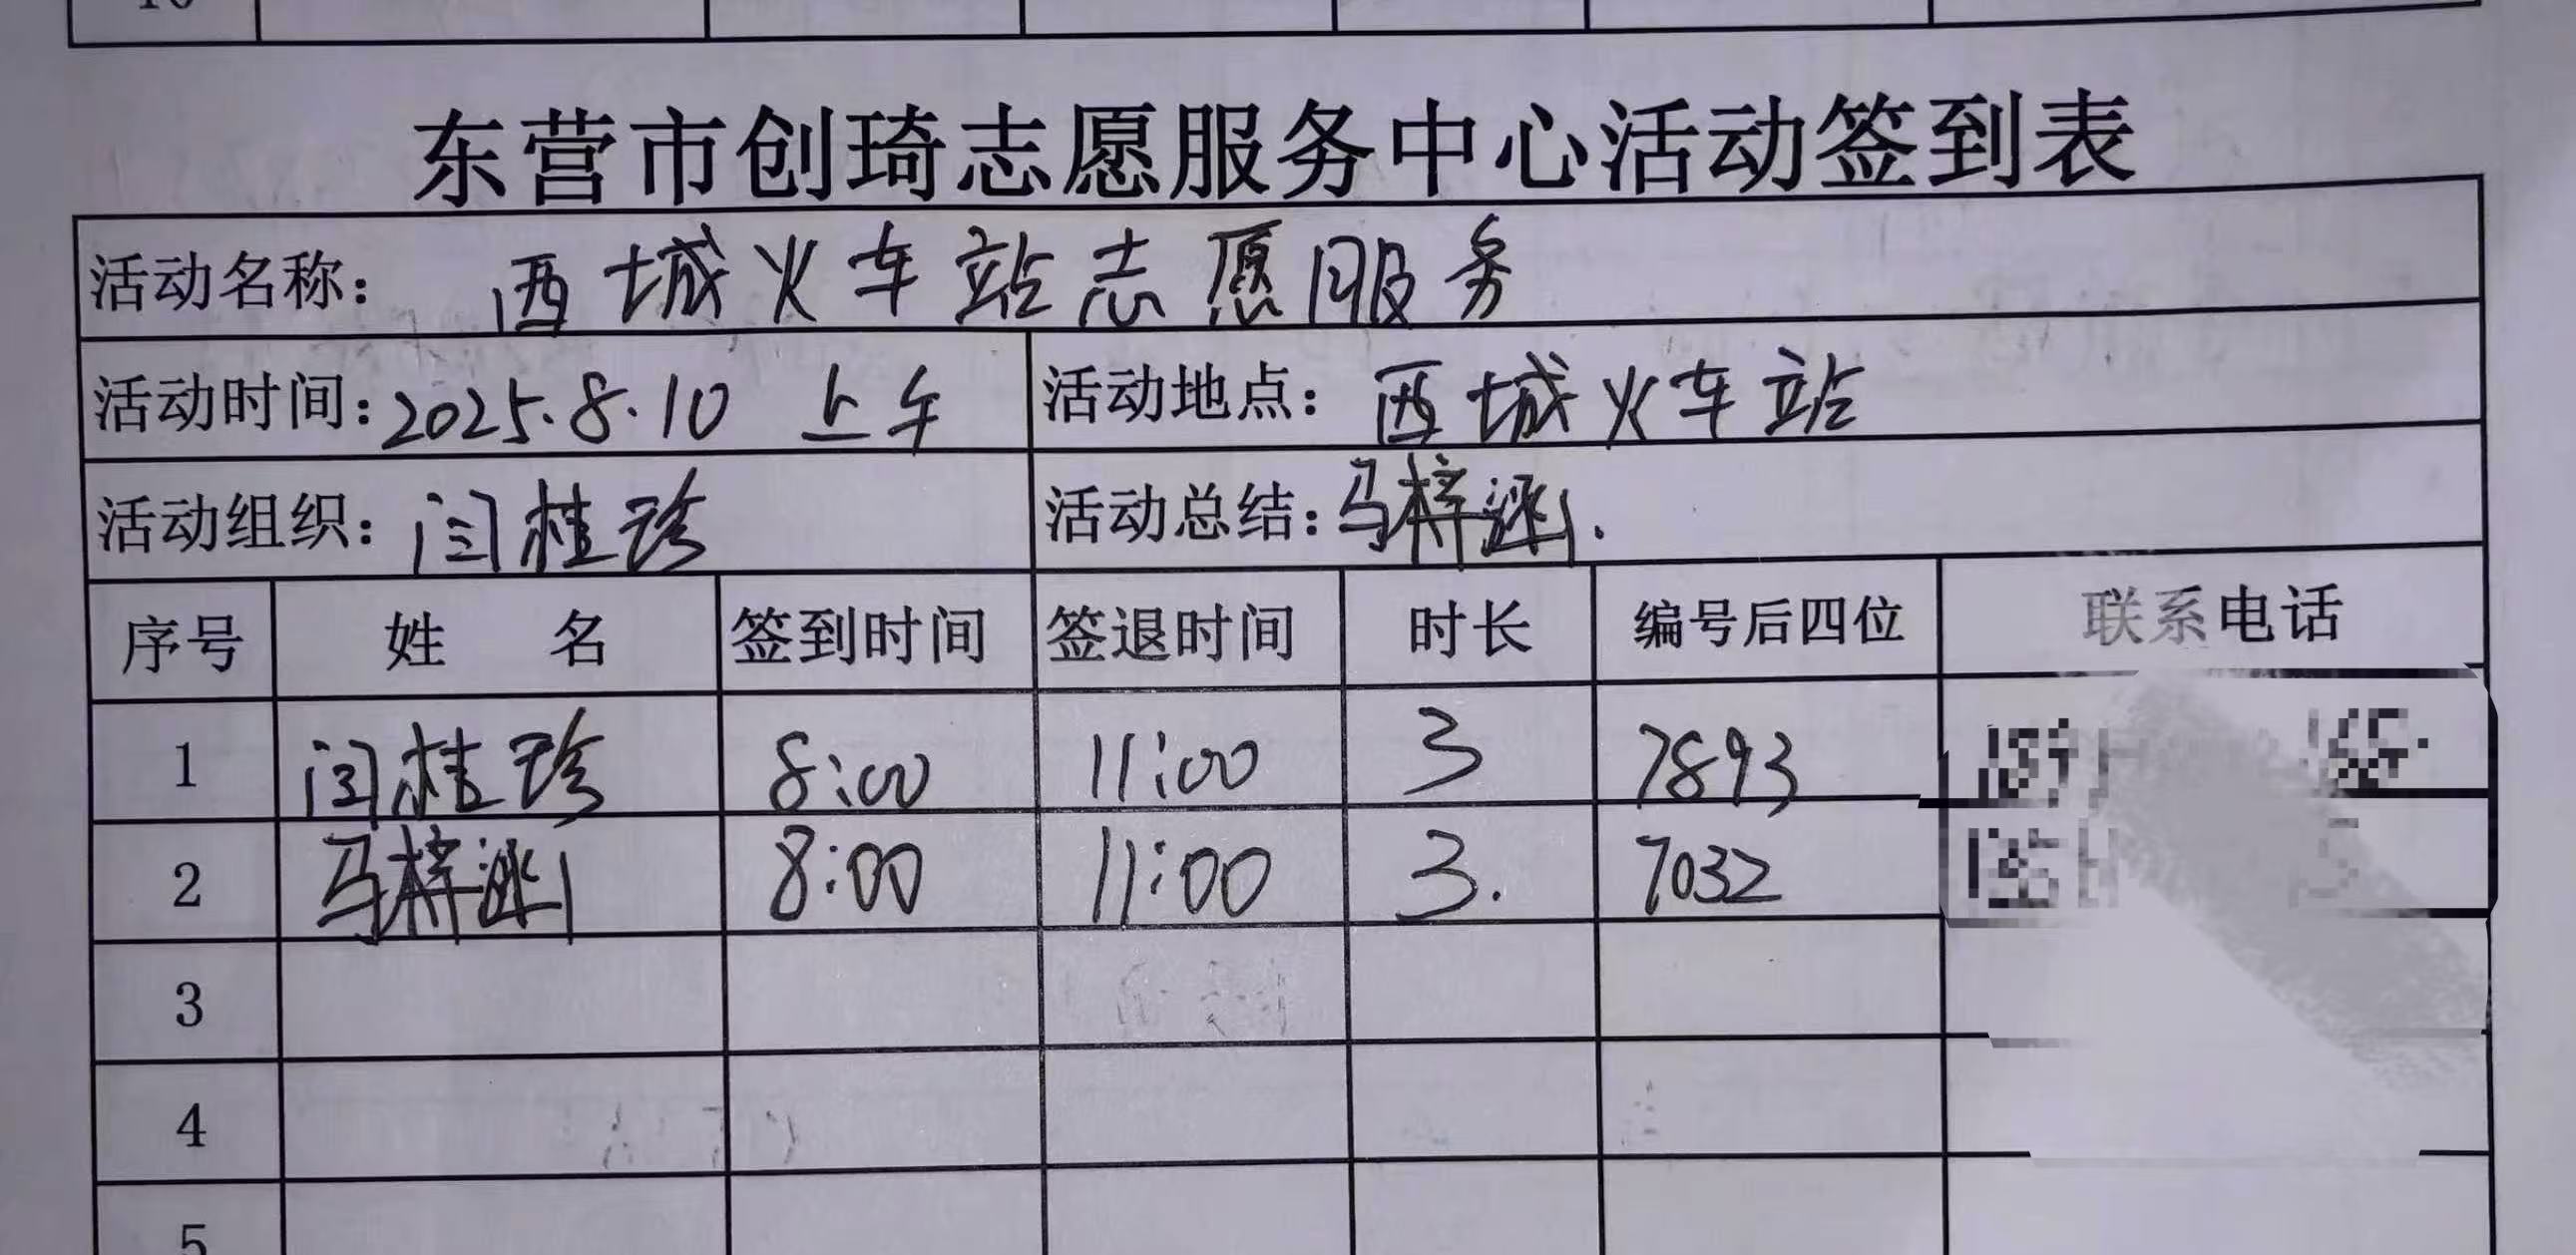 10
东营市创琦志愿服务中心活动签到表
活动名称： 西城火车站志愿服务
活动时间：2025.8.10 上午 活动地点： 西城火车站
活动组织： 闫桂珍 活动总结：马梓涵.
序号 姓 名 签到时间 签退时间 时长 编号后四位 联系电话
1 闫桂珍 8:00 11:00 3 7893
2 马梓涵 8:00 11:00 3. 7032
3
4
5